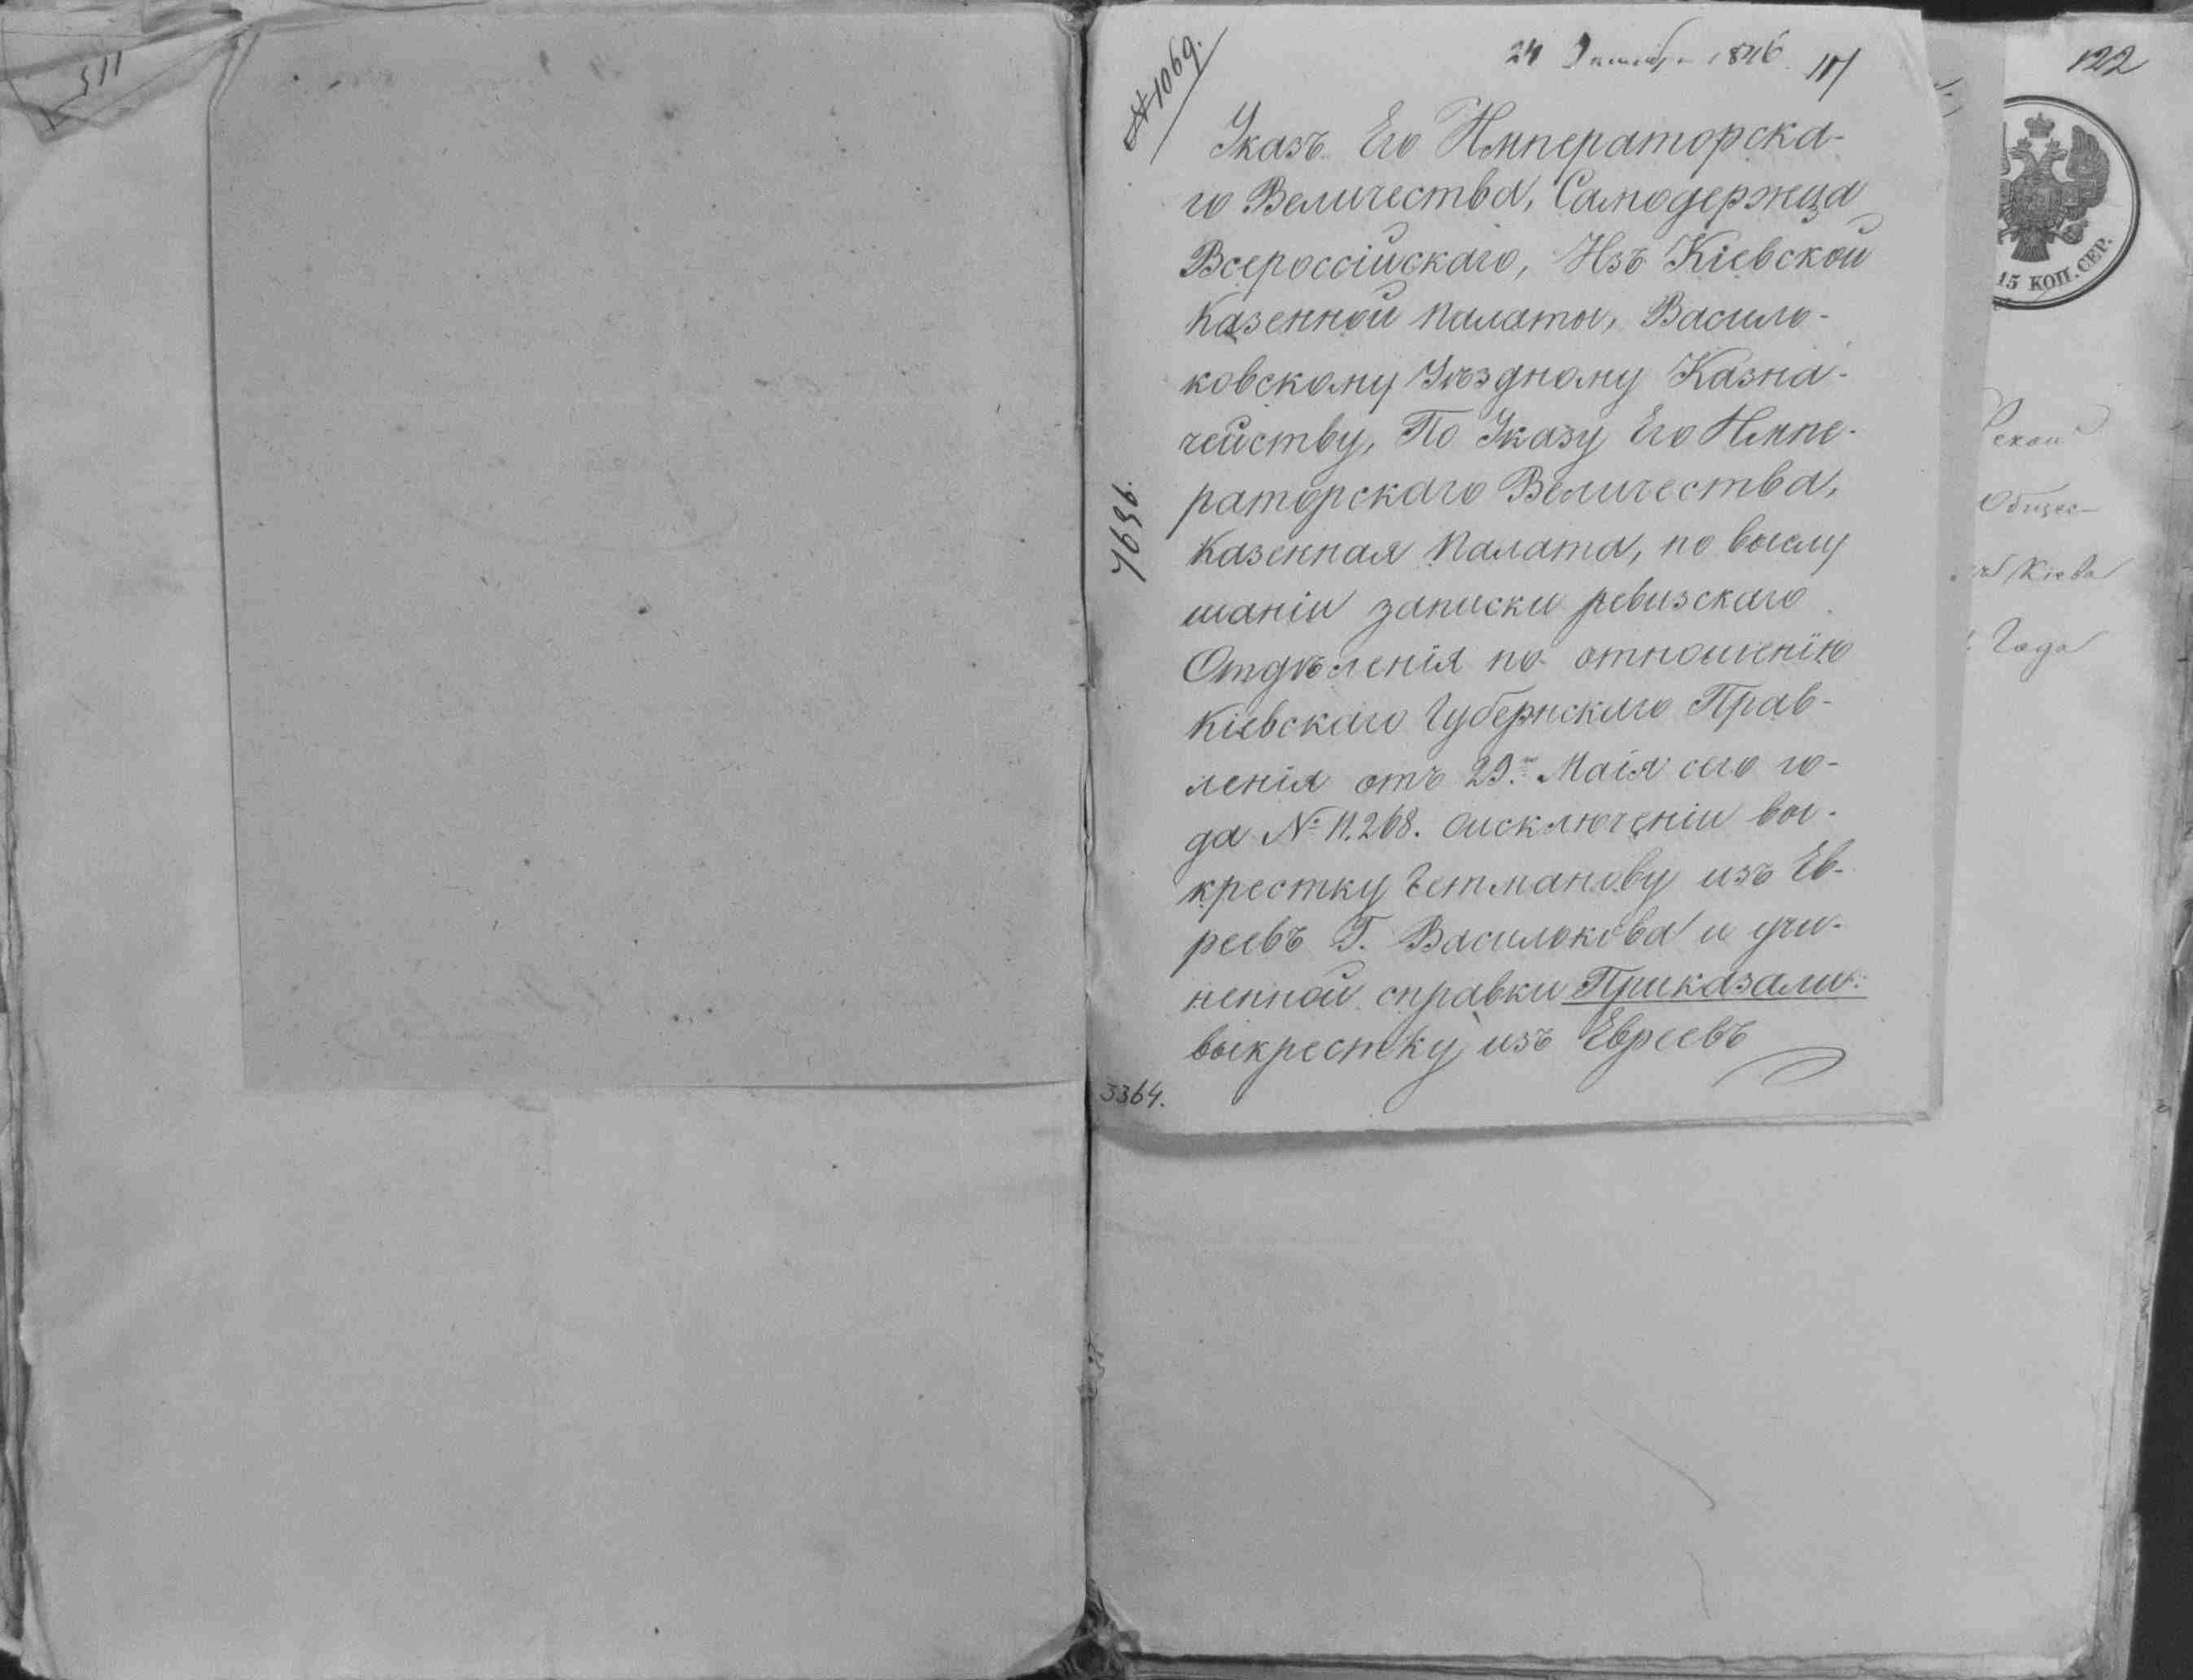 115
№ 1069.
24 1846
Указъ Его Императорска-
го Величества, Самодержца
Всероссійскаго, Изъ Кіевской
Казенной Палаты, Василь-
ковскому Уѣздному Казна-
чейству, По Указу Его Импе-
раторскаго Величества,
Казенная Палата, по выслу
шаніи записки ревизскаго
Отдѣленія по отношенію
Кіевскаго Губернскаго Прав-
ленія отъ 29. Маія сего го-
да № 11.268. о исключеніи вы-
крестку Гетманову изъ Ев-
реевъ Г. Василькова и учи-
ненной справки Приказали:
выкрестку изъ Евреевъ
7636.
3364.
122
15 КОП. СЕР.
ской
Общес-
Кіева
Года